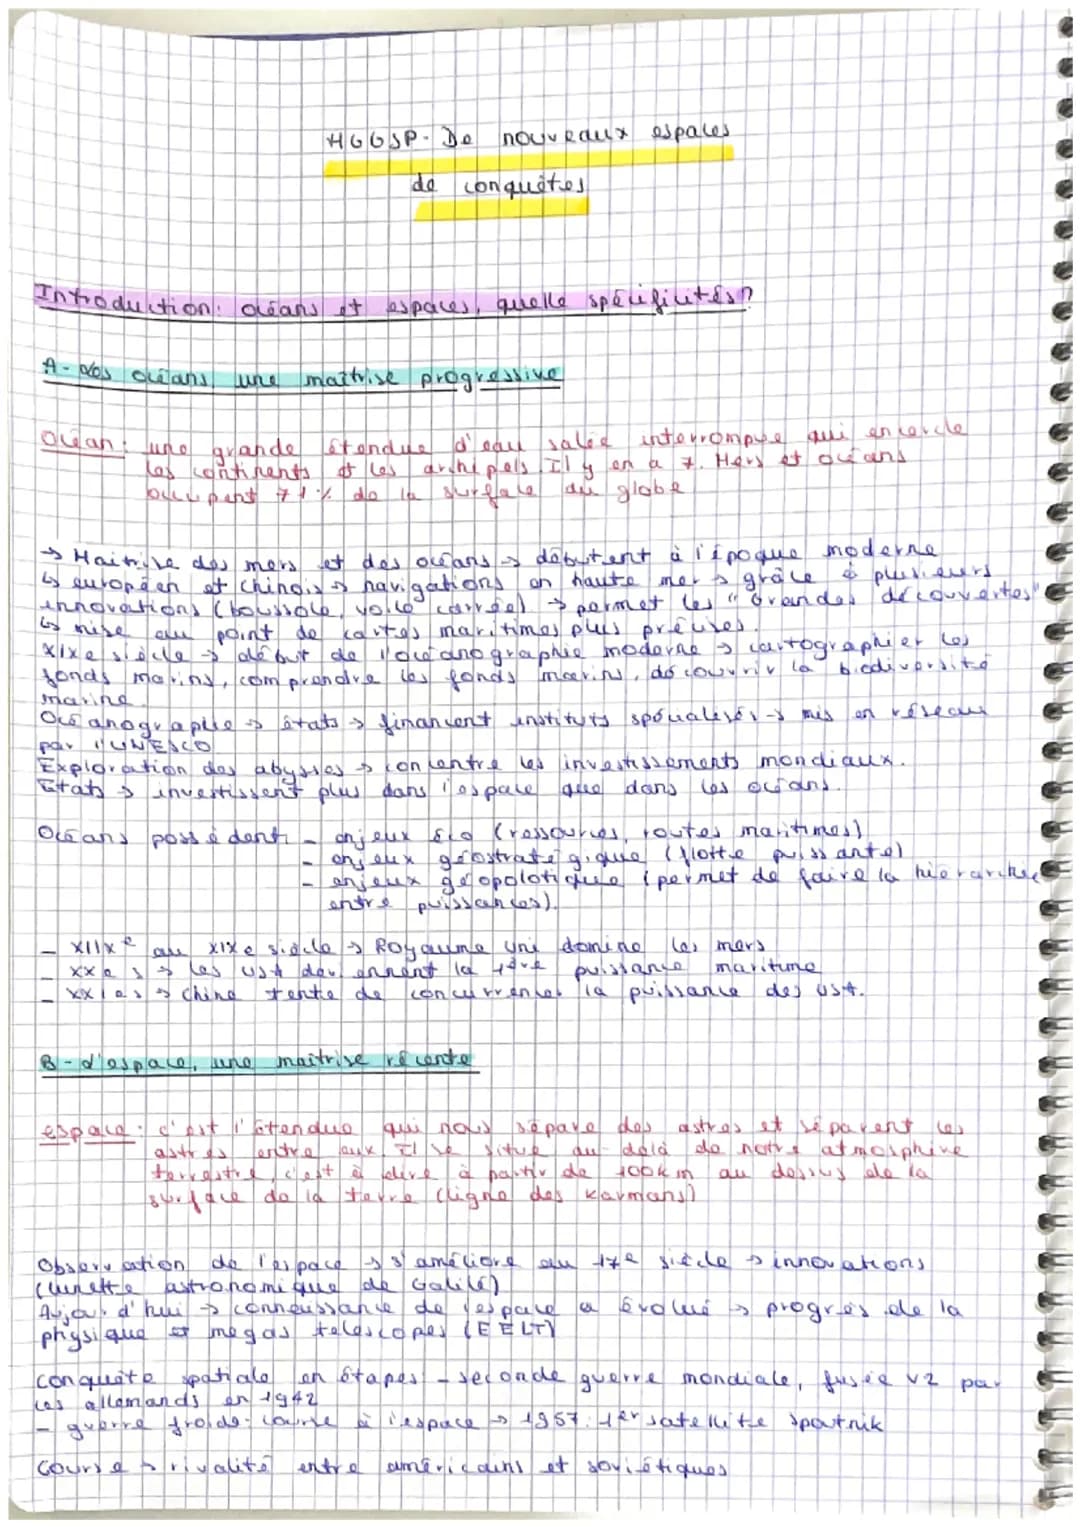 HGGSP - De nouveaux espaces
de conquêtes
Introduction: océans et espaces, quelle spécificités?
A - Les océans, une maîtrise progressive
Océan : une grande étendue d'eau salée interrompue qui encercle
les continents et les archipels. Il y en a 7. Mers et océans
occupent 71% de la surface du globe
→ Maitrise des mers et des océans → débutent à l'époque moderne
↳ européen et chinois → navigations en haute mer → grâce à plusieurs
innovations (boussole, voile carrée) → permet les "Grandes découvertes"
↳ mise au point de cartes maritimes plus précises.
XIXe siècle → début de l'océanographie moderne → cartographier les
fonds marins, comprendre les fonds marins, découvrir la biodiversité
marine.
Océanographie → états → financent instituts spécialisés → mis en réseau
par l'UNESCO
Exploration des abysses → concentre les investissements mondiaux.
États → investissent plus dans l'espace que dans les océans.
Océans possèdent - enjeux éco (ressources, routes maritimes)
- enjeux géostratégique (flotte puissante)
- enjeux géopolotique (permet de faire la hierarchie
entre puissances).
- au XIXe siècle → Royaume Uni domine les mers
- XXe s → les USA deviennent la 1ère puissance maritime
- XXIe s → Chine tente de concurrencer la puissance des USA.
B - L'espace, une maitrise récente
espace : c'est l'étendue qui nous sépare des astres et séparent les
astres entre eux. Il se situe au-delà de notre atmosphère
terrestre, c'est à dire à partir de 100km au dessus de la
surface de la terre (ligne des Karmans)
Observation de l'espace → s'améliore au 17e siècle → innovations
(lunette astronomique de Galilé)
Aujour d'hui → connaissance de l'espace a évolué → progrès de la
physique et megas telescopes (EELT)
conquête spatiale en étapes - seconde guerre mondiale, fusée V2 par
les allemands en 1942
- guerre froide: course à l'espace → 1957: 1er satellite Spoutnik
Course → rivalité entre américains et soviétiques